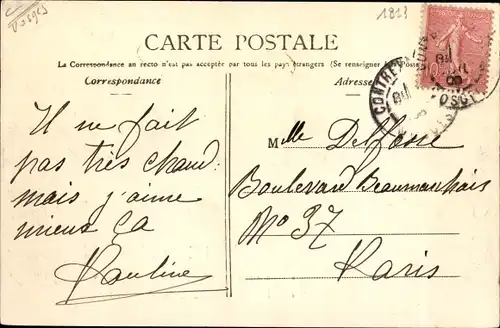 Vosges
1813
CARTE POSTALE
La Correspondance au recto n'est pas acceptée par tous les pays étrangers (Se renseigner à la Poste)
Correspondance
Adresse
CONTREX
VOSGES
10
Il ne fait
pas très chaud
mais j'aime
mieux ça
Pauline
Mlle Delfosse
Boulevard Beaumarchais
No 37
Paris